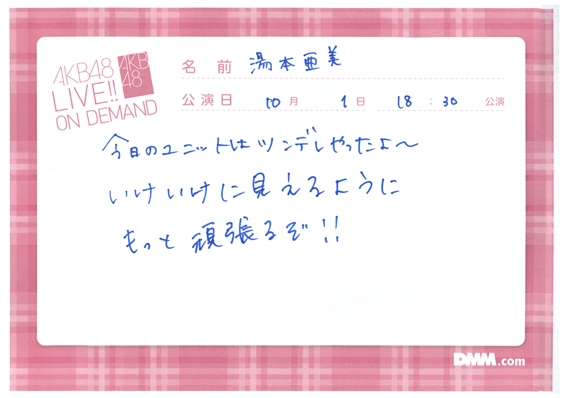 AKB48
LIVE!!
ON DEMAND
AKB
48
名前 湯本亜美
公演日 10月 1日 18:30 公演
今日のユニットはツンデレやったよ〜
いけいけに見えるように
もっと頑張るぞ!!
DMM.com